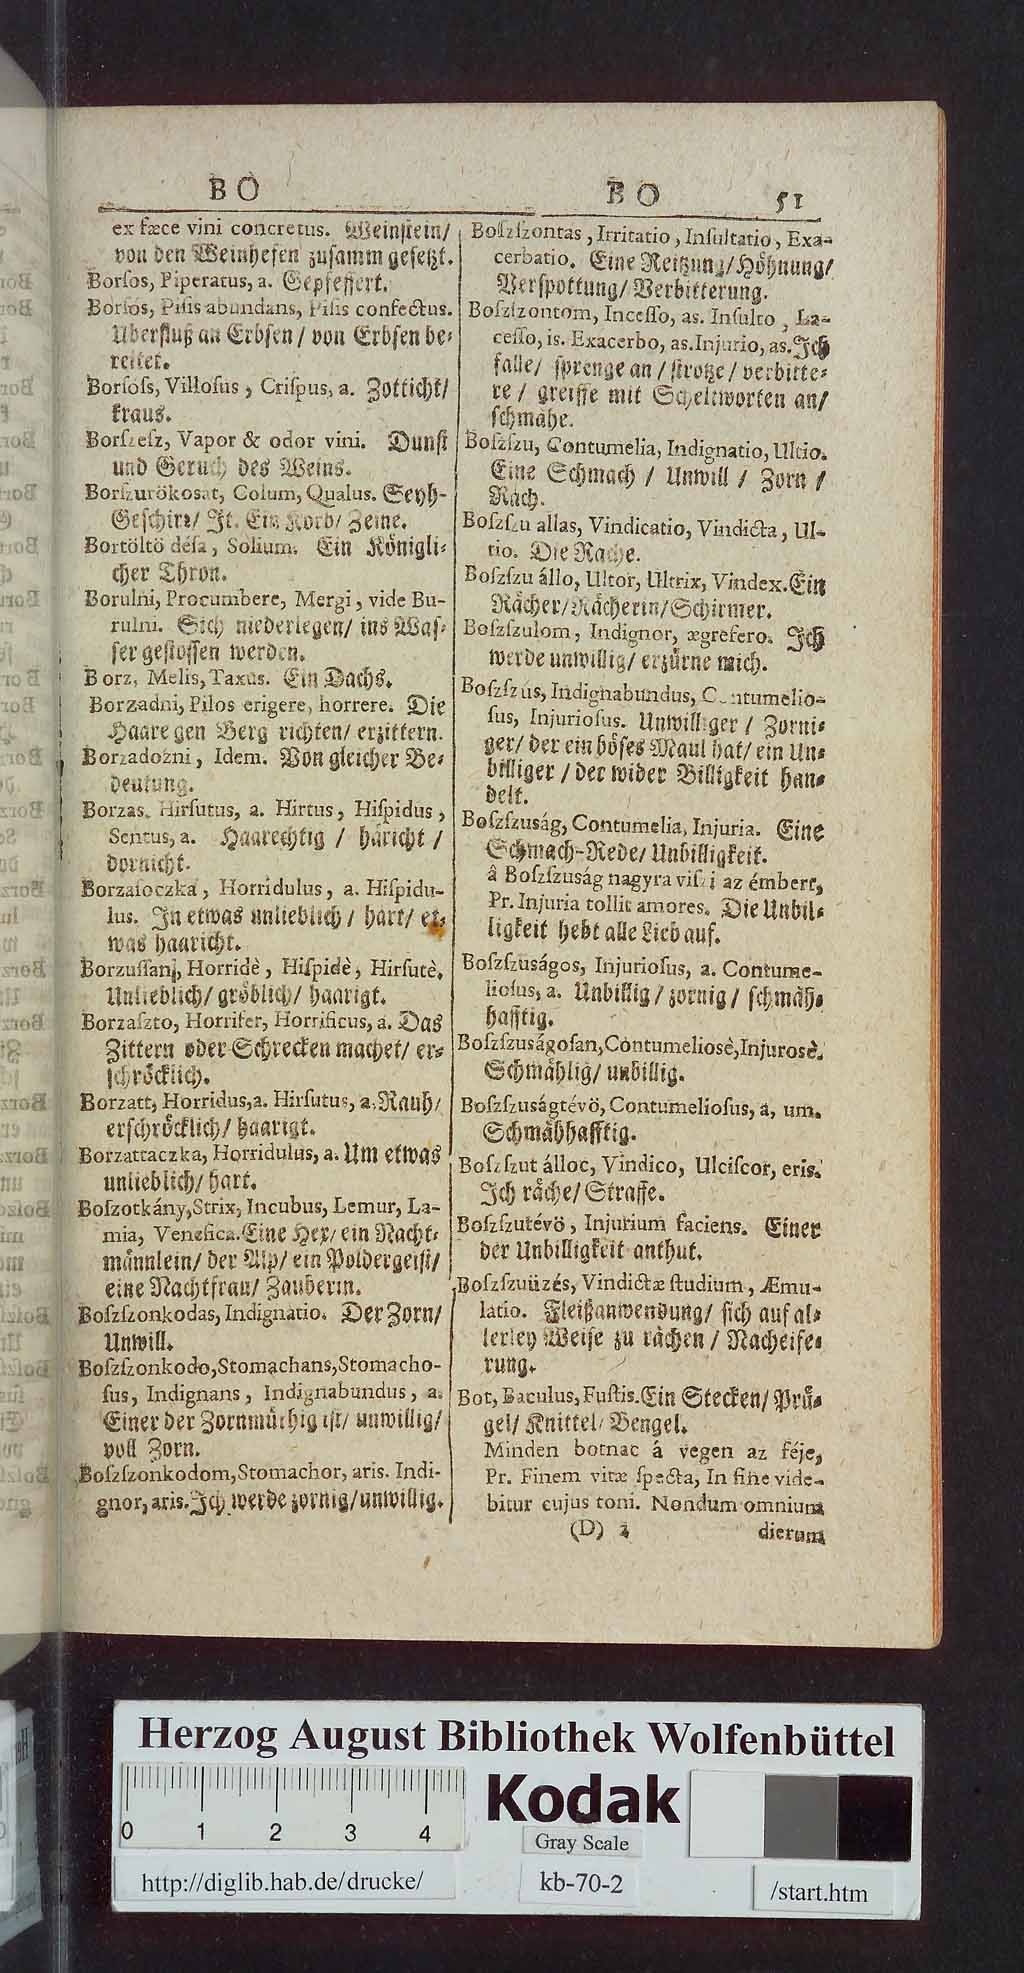 BO
ex fæce vini concretus. Weinstein/
von den Weinhefen zusamm gesetzt.
Borsos, Piperatus, a. Gepfeffert.
Borsós, Pisis abundans, Pisis confectus.
Uberfluß an Erbsen / von Erbsen be-
reitet.
Borsoſs, Villosus, Crispus, a. Zotticht/
kraus.
Borſzesz, Vapor & odor vini. Dunst
und Geruch des Weins.
Borſzurökosat, Colum, Qualus. Seyh-
Geschirr/ It. Ein Korb/ Zeine.
Bortöltö désa, Solium. Ein Königli-
cher Thron.
Borulni, Procumbere, Mergi, vide Bu-
rulni. Sich niederlegen/ ins Was-
ser gestossen werden.
Borz, Melis, Taxus. Ein Dachs.
Borzadni, Pilos erigere, horrere. Die
Haare gen Berg richten/ erzittern.
Borzadozni, Idem. Von gleicher Be-
deutung.
Borzas, Hirsutus, a. Hirtus, Hispidus,
Sentus, a. Haarechtig / häricht /
dornicht.
Borzasoczka, Horridulus, a. Hispidu-
lus. In etwas unlieblich / hart/ et-
was haaricht.
Borzussanj, Horridè, Hispidè, Hirsutè.
Unlieblich/ gröblich/ haarigt.
Borzaszto, Horrifer, Horrificus, a. Das
Zittern oder Schrecken machet/ er-
schröcklich.
Borzatt, Horridus, a. Hirsutus, a. Rauh/
erschröcklich/ haarigt.
Borzattaczka, Horridulus, a. Um etwas
unlieblich/ hart.
Boſzotkány, Strix, Incubus, Lemur, La-
mia, Venefica. Eine Hex/ ein Nacht-
männlein/ der Alp/ ein Poldergeist/
eine Nachtfrau/ Zauberin.
Boſzſzonkodas, Indignatio. Der Zorn/
Unwill.
Boſzſzonkodo, Stomachans, Stomacho-
sus, Indignans, Indignabundus, a.
Einer der Zornmüthig ist/ unwillig/
voll Zorn.
Boſzſzonkodom, Stomachor, aris. Indi-
gnor, aris. Ich werde zornig/ unwillig.
BO 51
Boſzſzontas, Irritatio, Insultatio, Exa-
cerbatio. Eine Reitzung/ Höhnung/
Verspottung/ Verbitterung.
Boſzſzontom, Incesso, as. Insulto, La-
cesso, is. Exacerbo, as. Injurio, as. Ich
falle/ sprenge an / strotze / verbitte-
re / greiffe mit Scheltworten an/
schmähe.
Boſzſzu, Contumelia, Indignatio, Ultio.
Eine Schmach / Unwill / Zorn /
Rach.
Boſzſzu allas, Vindicatio, Vindicta, Ul-
tio. Die Rache.
Boſzſzu állo, Ultor, Ultrix, Vindex. Ein
Rächer/ Rächerin/ Schirmer.
Boſzſzulom, Indignor, ægrefero. Ich
werde unwillig/ erzürne mich.
Boſzſzús, Indignabundus, Contumelio-
sus, Injuriosus. Unwilliger / Zorni-
ger/ der ein böses Maul hat/ ein Un-
billiger / der wider Billigkeit han-
delt.
Boſzſzuság, Contumelia, Injuria. Eine
Schmach-Rede/ Unbilligkeit.
â Boſzſzuság nagyra viszi az émbert,
Pr. Injuria tollit amores. Die Unbil-
ligkeit hebt alle Lieb auf.
Boſzſzuságos, Injuriosus, a. Contume-
liosus, a. Unbillig / zornig / schmäh-
hafftig.
Boſzſzuságosan, Contumeliosè, Injurosè.
Schmählig/ unbillig.
Boſzſzuságtévö, Contumeliosus, a, um.
Schmähhafftig.
Boſzſzut álloc, Vindico, Ulciscor, eris.
Ich räche/ Straffe.
Boſzſzutévö, Injurium faciens. Einer
der Unbilligkeit anthut.
Boſzſzuüzés, Vindictæ studium, Æmu-
latio. Fleißanwendung/ sich auf al-
lerley Weise zu rächen / Nacheife-
rung.
Bot, Baculus, Fustis. Ein Stecken/ Prü-
gel/ Knittel/ Bengel.
Minden botnac á vegen az féje,
Pr. Finem vitæ specta, In fine vide-
bitur cujus toni. Nondum omnium
(D) 2 dierum
Herzog August Bibliothek Wolfenbüttel
0 1 2 3 4
Kodak
Gray Scale
http://diglib.hab.de/drucke/
kb-70-2
/start.htm